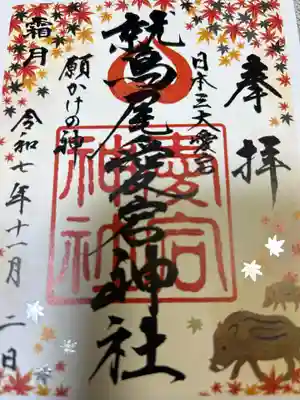 奉拝
日本三大愛宕
鷲尾愛宕神社
願かけの神
霜月
令和七年十一月二日
愛宕
神社